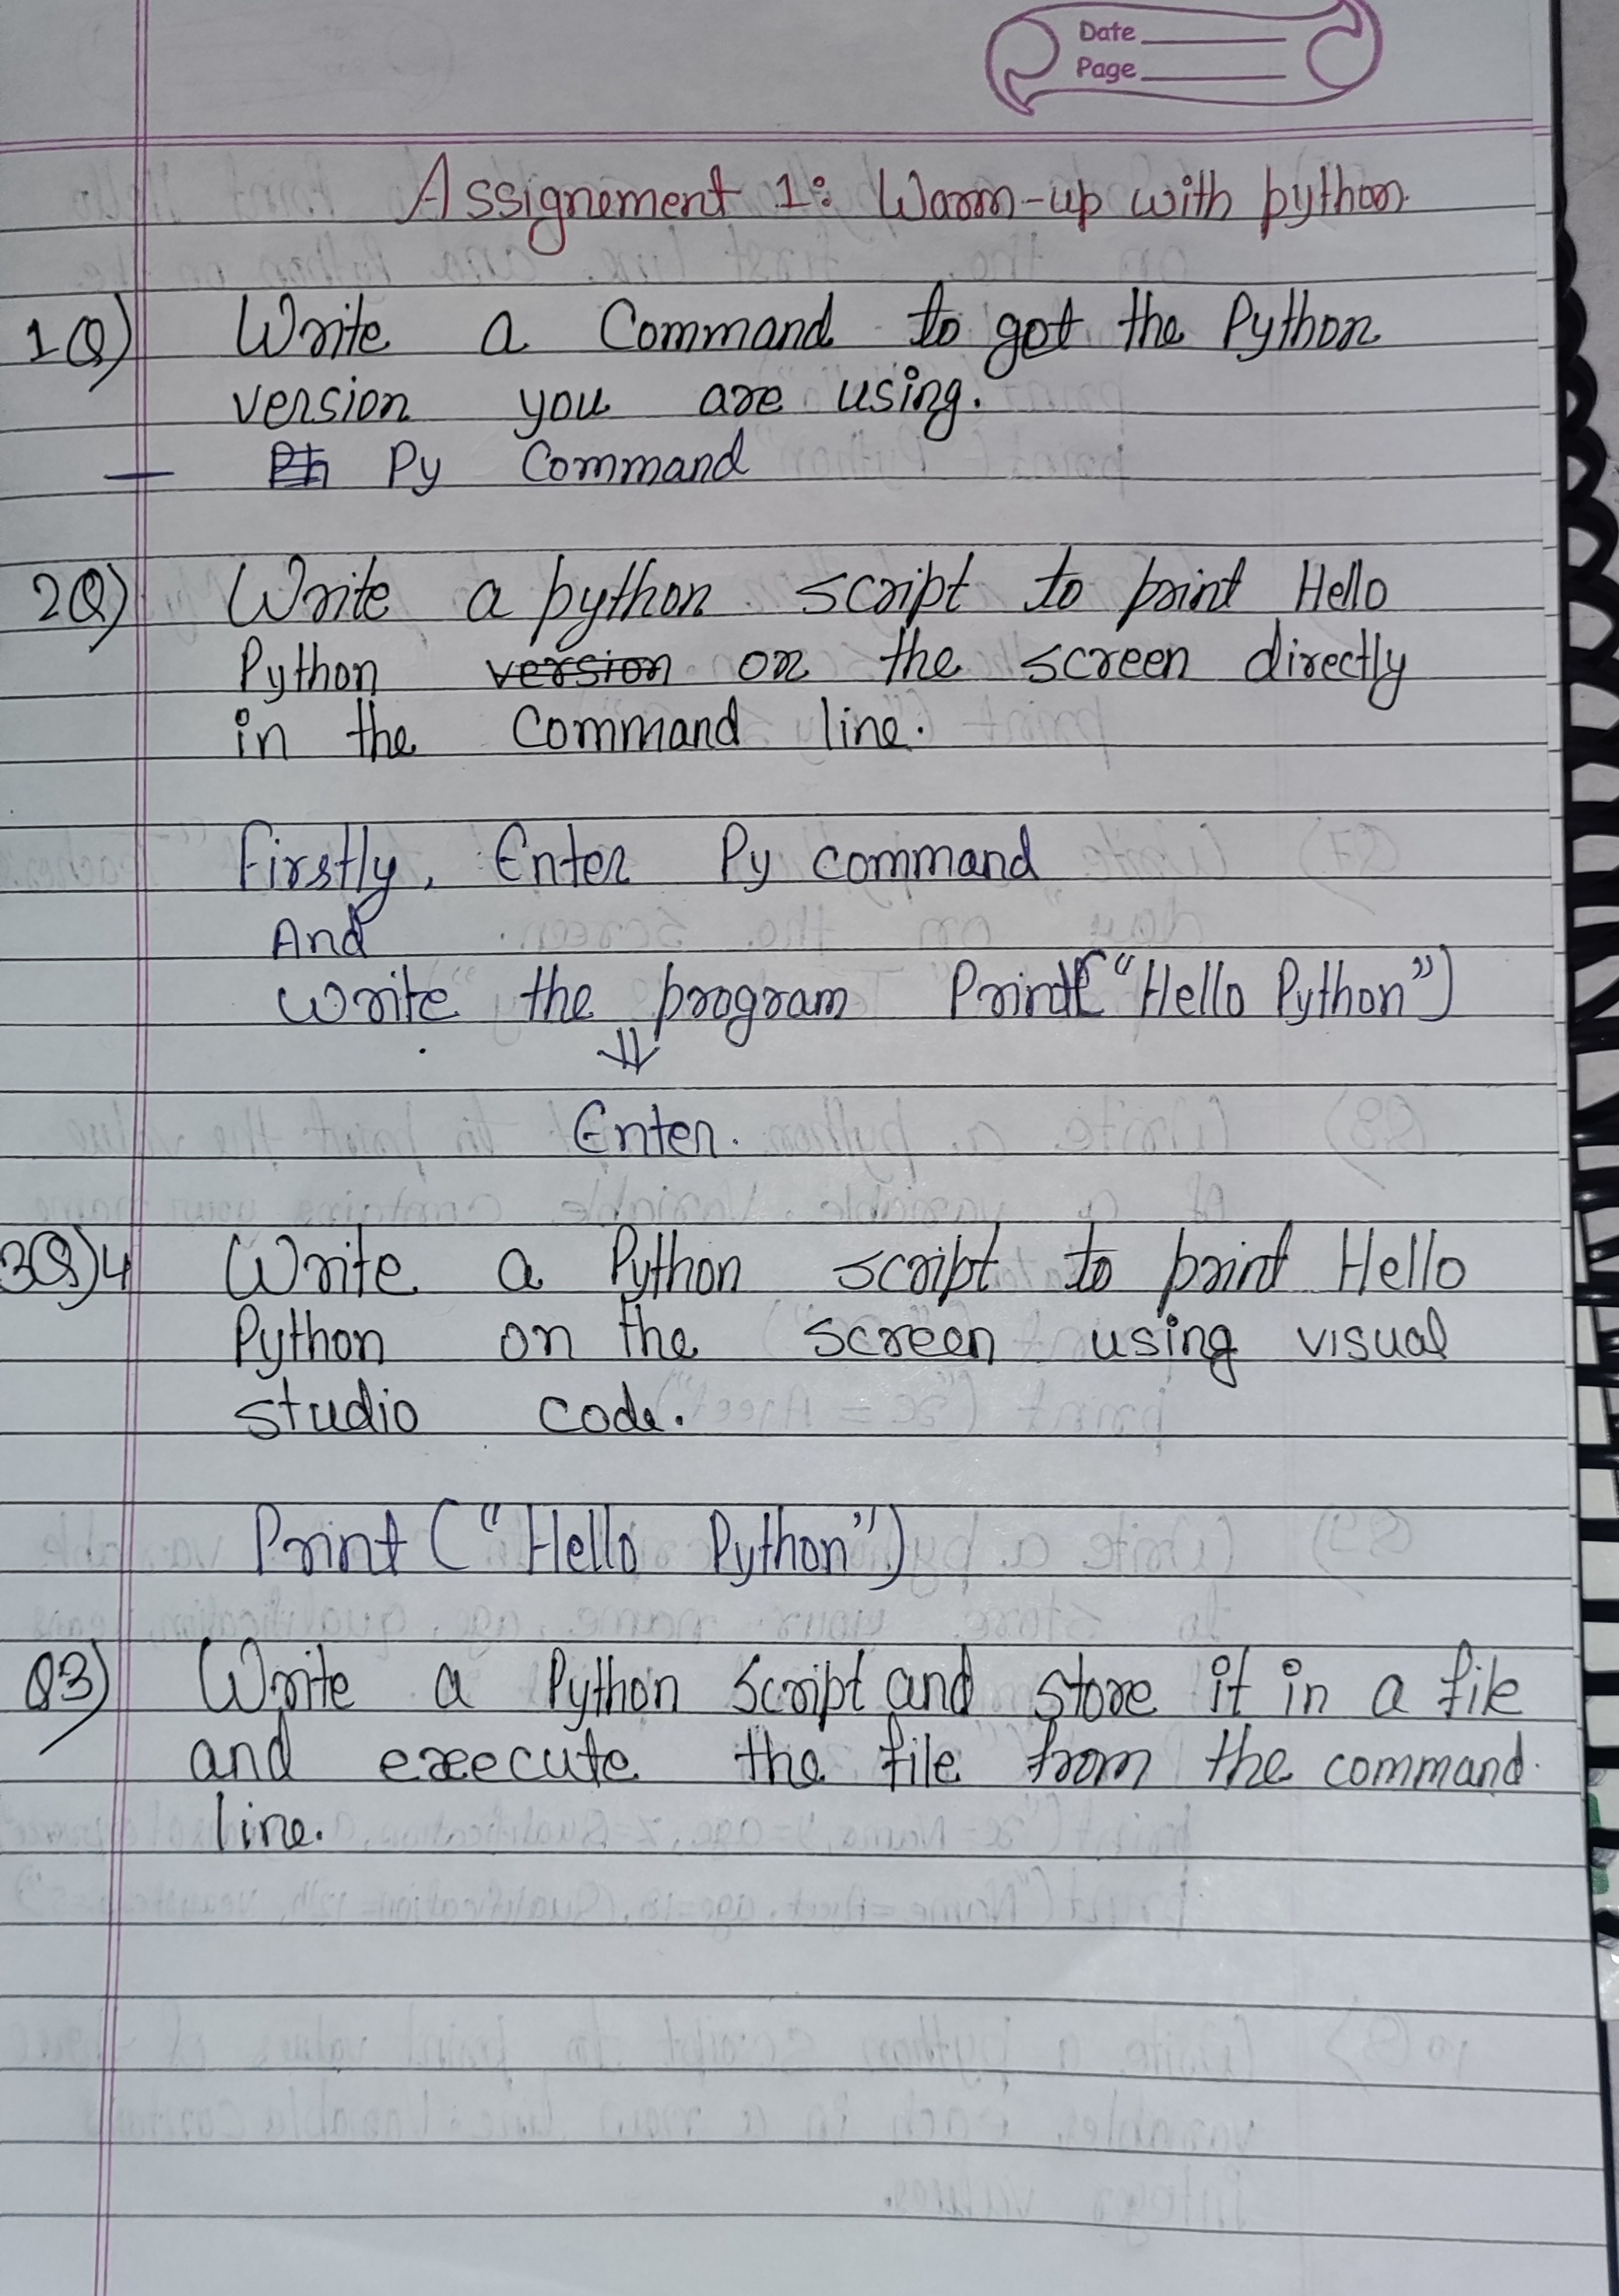 Date
Page
Assignement 1: Warm-up with python
1Q) Write a Command to get the Python
version you are using.
— Py Command
2Q) Write a python script to print Hello
Python version on the screen directly
in the Command line.
Firstly, Enter Py command
And
write the program Print("Hello Python")
⇓
Enter.
3Q)4 Write a Python script to print Hello
Python on the screen using visual
studio code.
Print ("Hello Python")
Q3) Write a Python Script and store it in a file
and execute the file from the command
line.